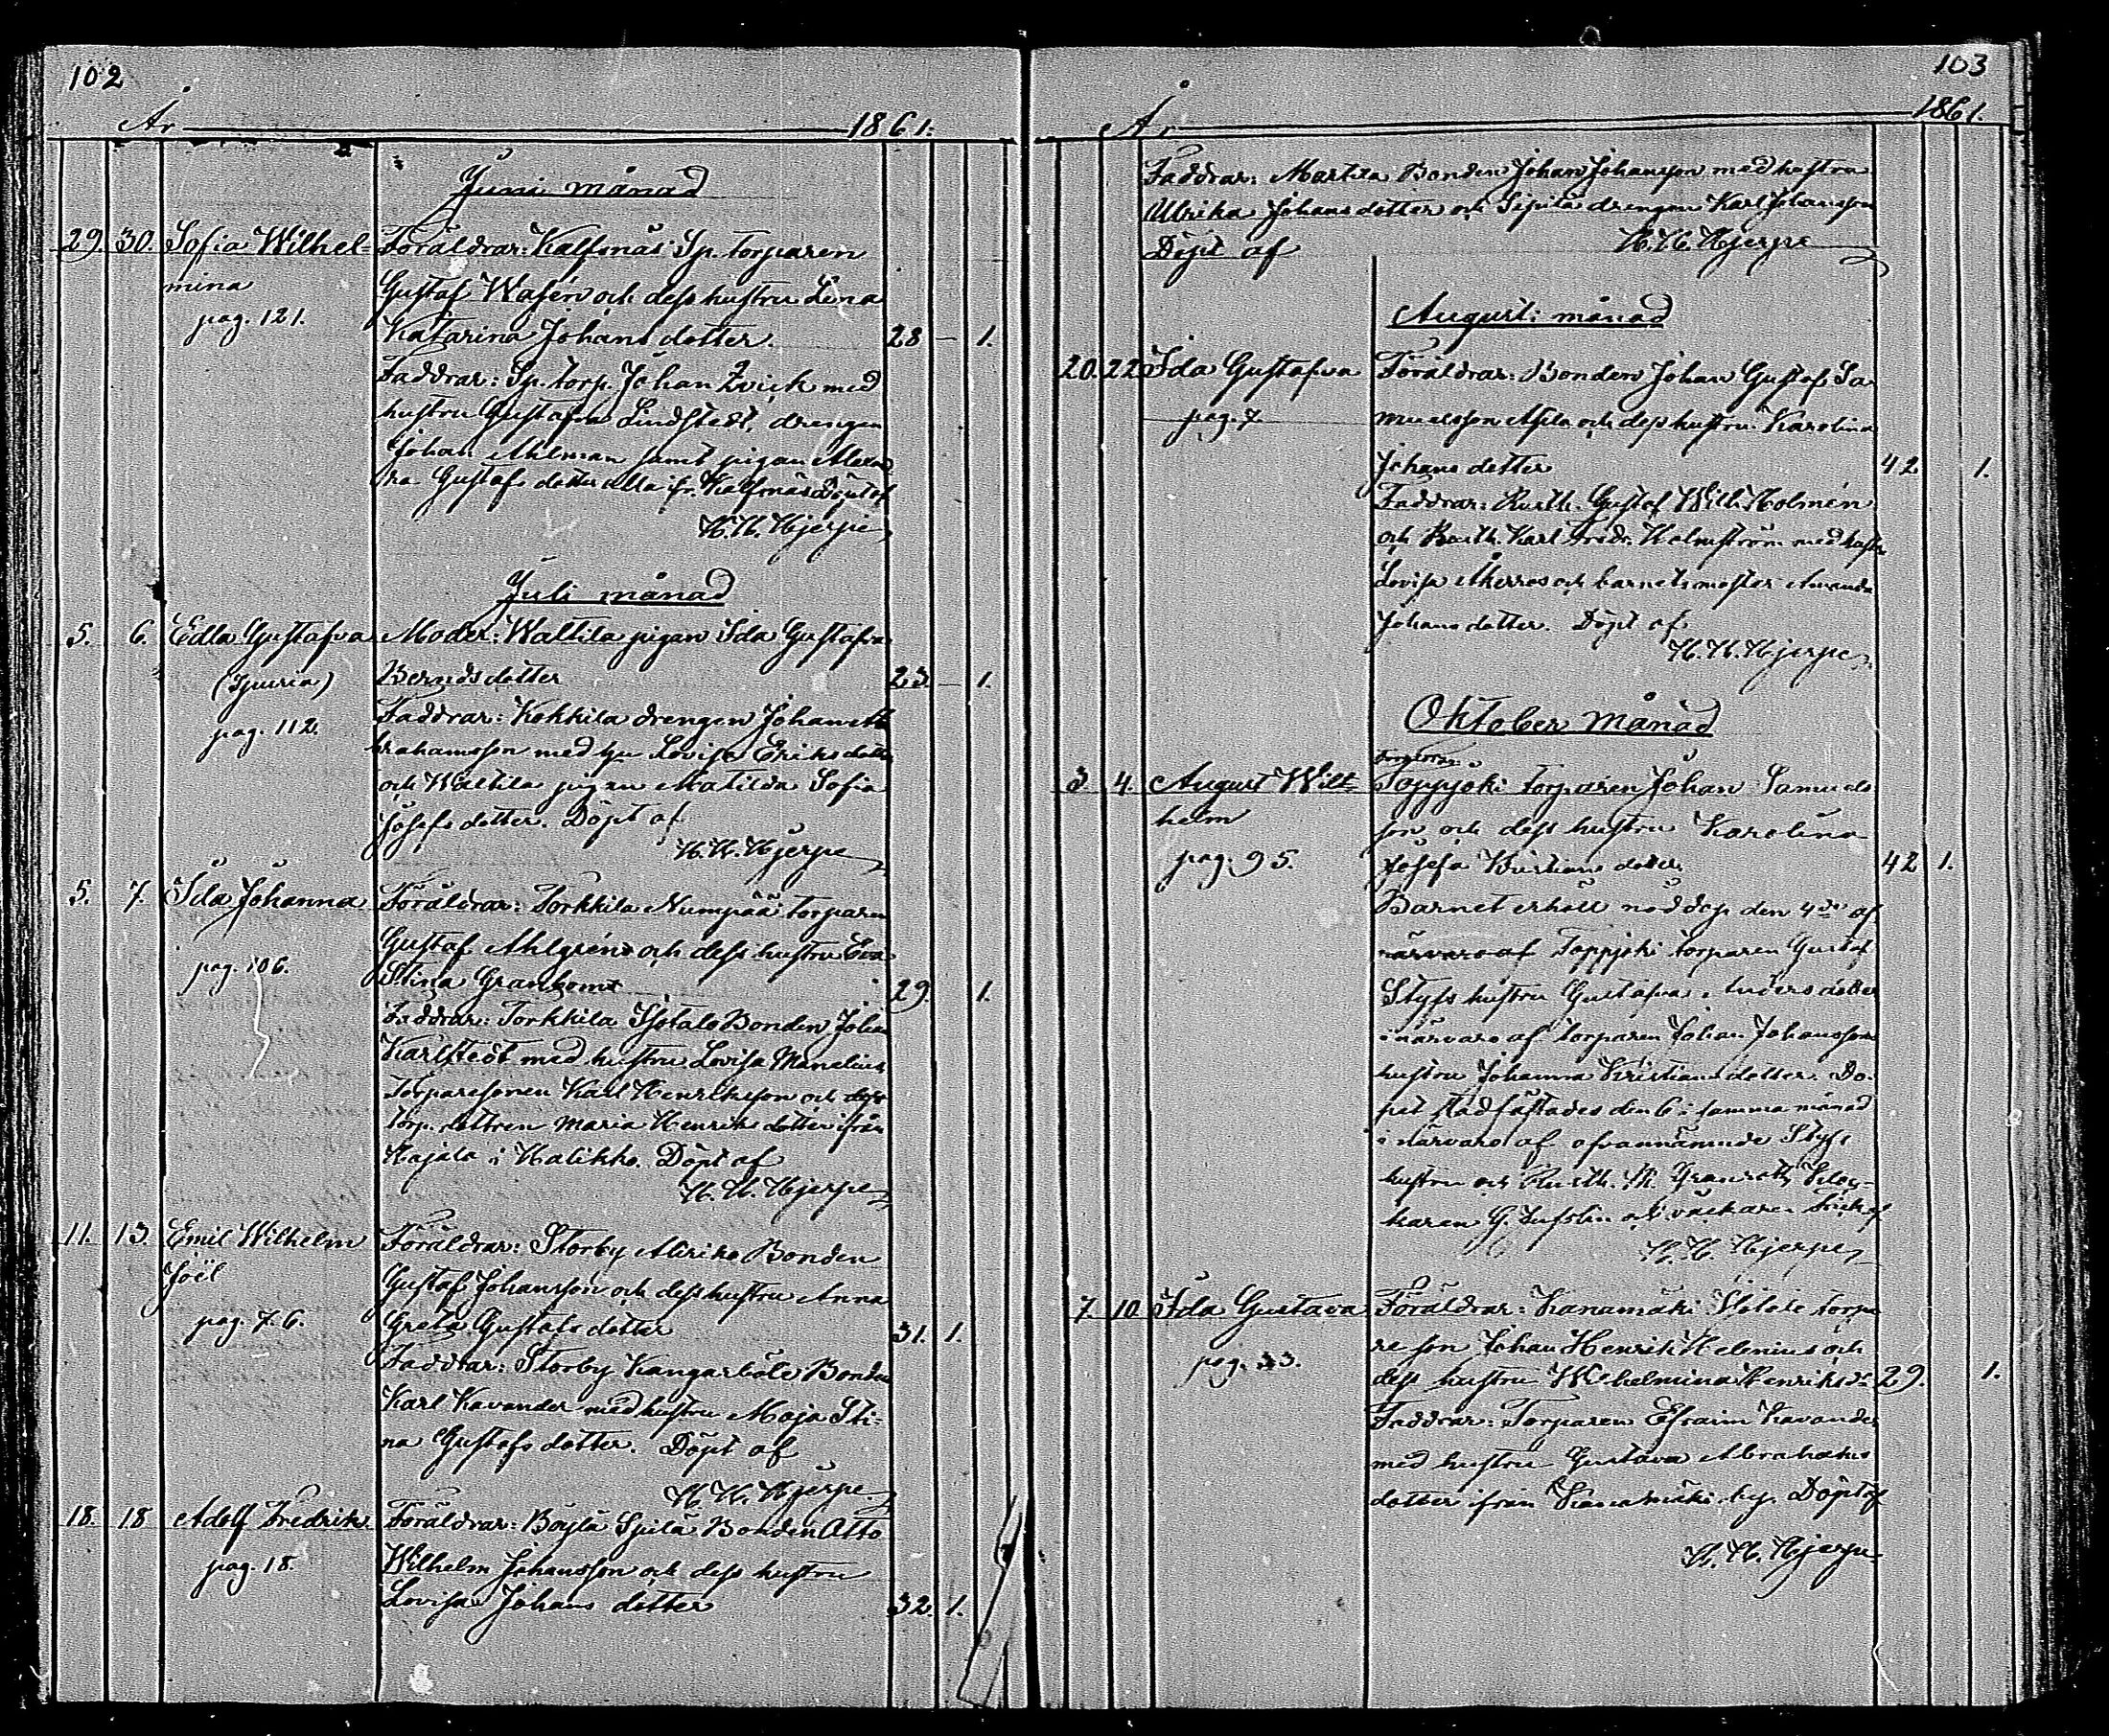 102
År 1861.
Juni månad
29. 30. Sofia Wilhel= Föräldrar: Kalfsnäs Sp. torparen
mina Gustaf Wasén och dess hustru Lena
pag. 121.
Katarina Johans dotter. 28 — 1.
Faddrar: Sp. torp. Johan Zvick med
hustru Gustafva Lindstedt, drengen
Johan Ahlman samt pigan
Gustafs dotter alla fr. Kalfsnäs Döpt af
H. H. Hjerpe
Juli månad
5. 6. Edla Gustafva Moder: Waltila pigan Ida Gustafva
(Spuria) Berndsdotter 23. — 1.
pag. 112. Faddrar: Kokkila drengen Johan A
brahamsson med hu Lovisa Eriksdotter
och Waltila pigan Matilda Sofia
Josefs dotter. Döpt af
H. H. Hjerpe
5. 7. Ida Johanna Föräldrar: Torkkila Numpää torparen
Gustaf Ahlgren och dess hustru Eva
pag. 106.
Stina Granbom 29. 1.
Faddrar: Torkkila Isotalo Bonden Johan
Karlstedt med hustru Lovisa Manelius
Torparesonen Karl Henriksson och
torp. dottren Maria Henriks dotter ifrån
Kajala i Halikko. Döpt af
H. H. Hjerpe
11. 13. Emil Wilhelm Föräldrar: Storby Alriko Bonden
Joël Gustaf Johansson och dess hustru Anna
pag. 76. Greta Gustafs dotter 31. 1.
Faddrar: Storby Kangarböle Bonden
Karl Kavander med hustru Maja Sti=
na Gustafs dotter. Döpt af
H. H. Hjerpe
18. 18 Adolf Fredrik Föräldrar: Böylä Sipilä Bonden Otto
pag. 18. Wilhelm Johansson och dess hustru
Lovisa Johans dotter 32. 1.
103
År 1861.
Faddrar: Martila Bonden Johan Johansson med hustru
Ulrika Johansdotter och Sipilä drengen Karl Johansson
Döpt af H. H. Hjerpe
Augusti månad
20. 22 Ida Gustafva Föräldrar: Bonden Johan Gustaf Sa
pag. 7. muelsson och dess hustru Karolina
Johans dotter 42 1.
Faddrar: Rusth. Gustaf Wilh. Holmén
och Rusth. Karl Fredr. Holmström med hustru
Lovisa och barnets moster Amanda
Johans dotter. Döpt af
H. H. Hjerpe
Oktober månad
Föräldrar
3 4. August Wil= Toppjoki torparen Johan Samuels
helm son och dess hustru Karolina
pag. 95. Josefa Kristians dotter 42 1.
Barnet erhöll nöddop den 4de af
närvaro af Toppjoki torparen Gustaf
Styfs hustru Gustafva Anders dotter
i närvaro af torparen Johan Johanssons
hustru Johanna Kristians dotter. Do-
pet stadfästades den 6 i samma månad
i närvaro af ofvannämnde Styfs
hustru och Rusth.
karen G. och
H. H. Hjerpe
7. 10 Ida Gustava Föräldrar: Kanamäki torpa
re son Johan Henrik Helenius och
pag. 33. dess hustru Wilhelmina Henriksdr 29. 1.
Faddrar: Torparen Efraim Kavander
med hustru Gustava Abrahams
dotter ifrån Kanamäki by. Döpt af
H. H. Hjerpe